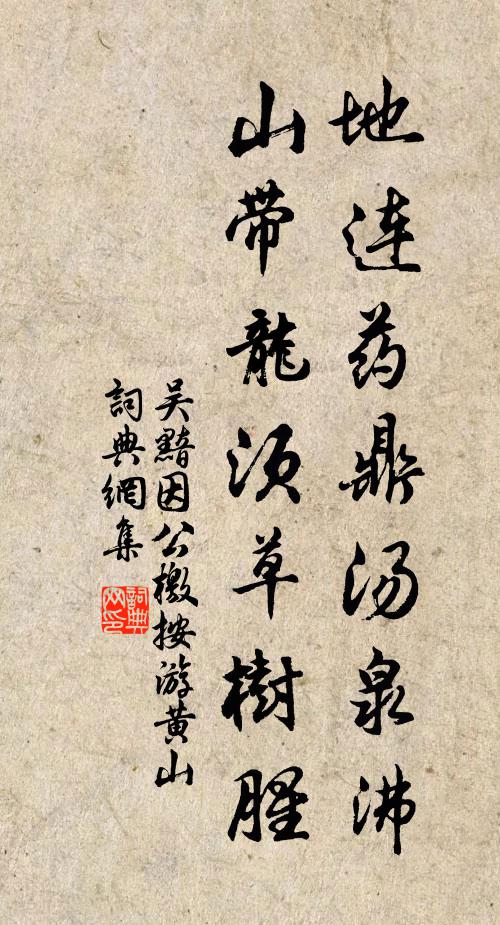 地连药鼎汤泉沸
山带龙须草树腥
吴黯因公檄按游黄山
词典网集
词典网印